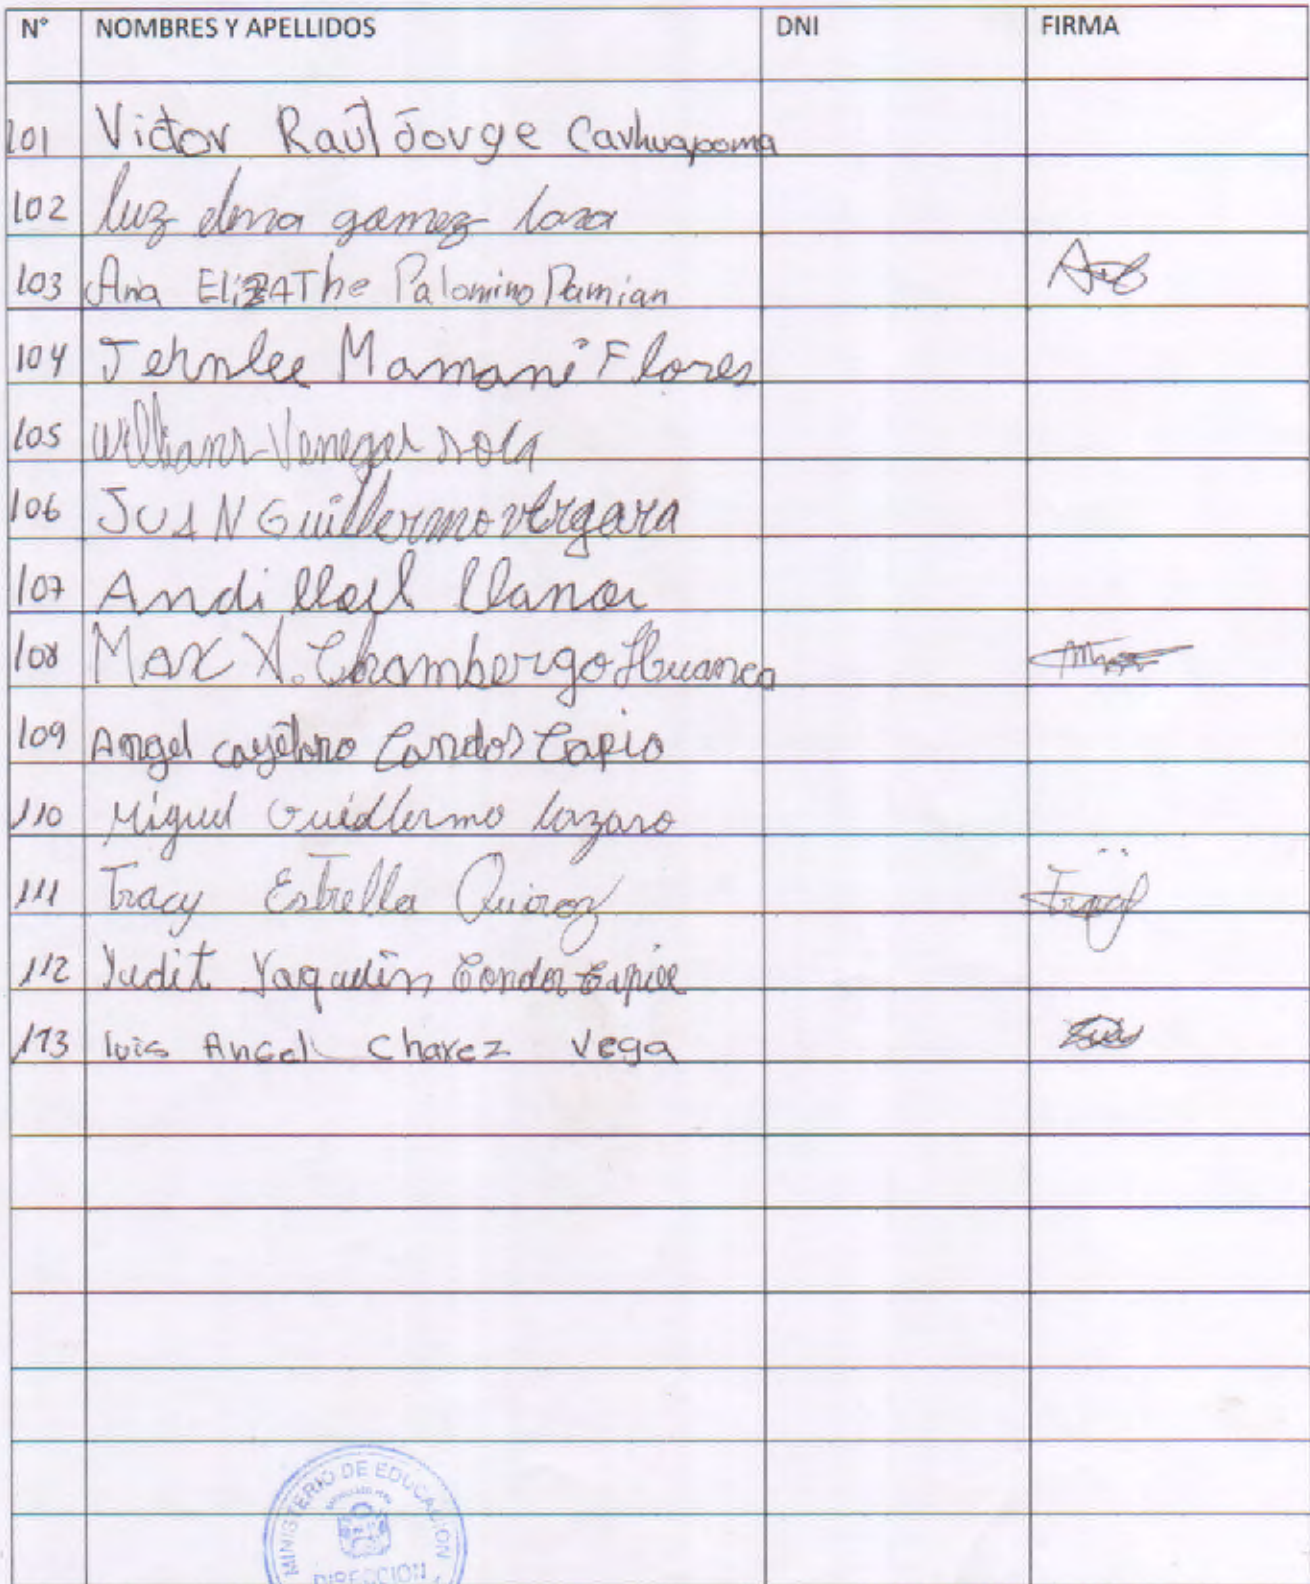 N° NOMBRES Y APELLIDOS DNI FIRMA
101 Victor Raúl Jorge Carhuapoma
102 luz elena gomez lara
103 Ana ElizAThe Palomino Damian
104 Jehnlee Mamani Flores
105 Willians Venegas sola
106 JUAN Guillermo vergara
107 Andi Llanos
108 Max X. Chambergo Huanca
109 Angel cayetano Condos Capio
110 Miguel Guillermo lazaro
111 Tracy Estrella Quiroz
112 Yudit Yaquelin Condor
113 luis Angel Chavez Vega
MINISTERIO DE EDUCACION
DIRECCION